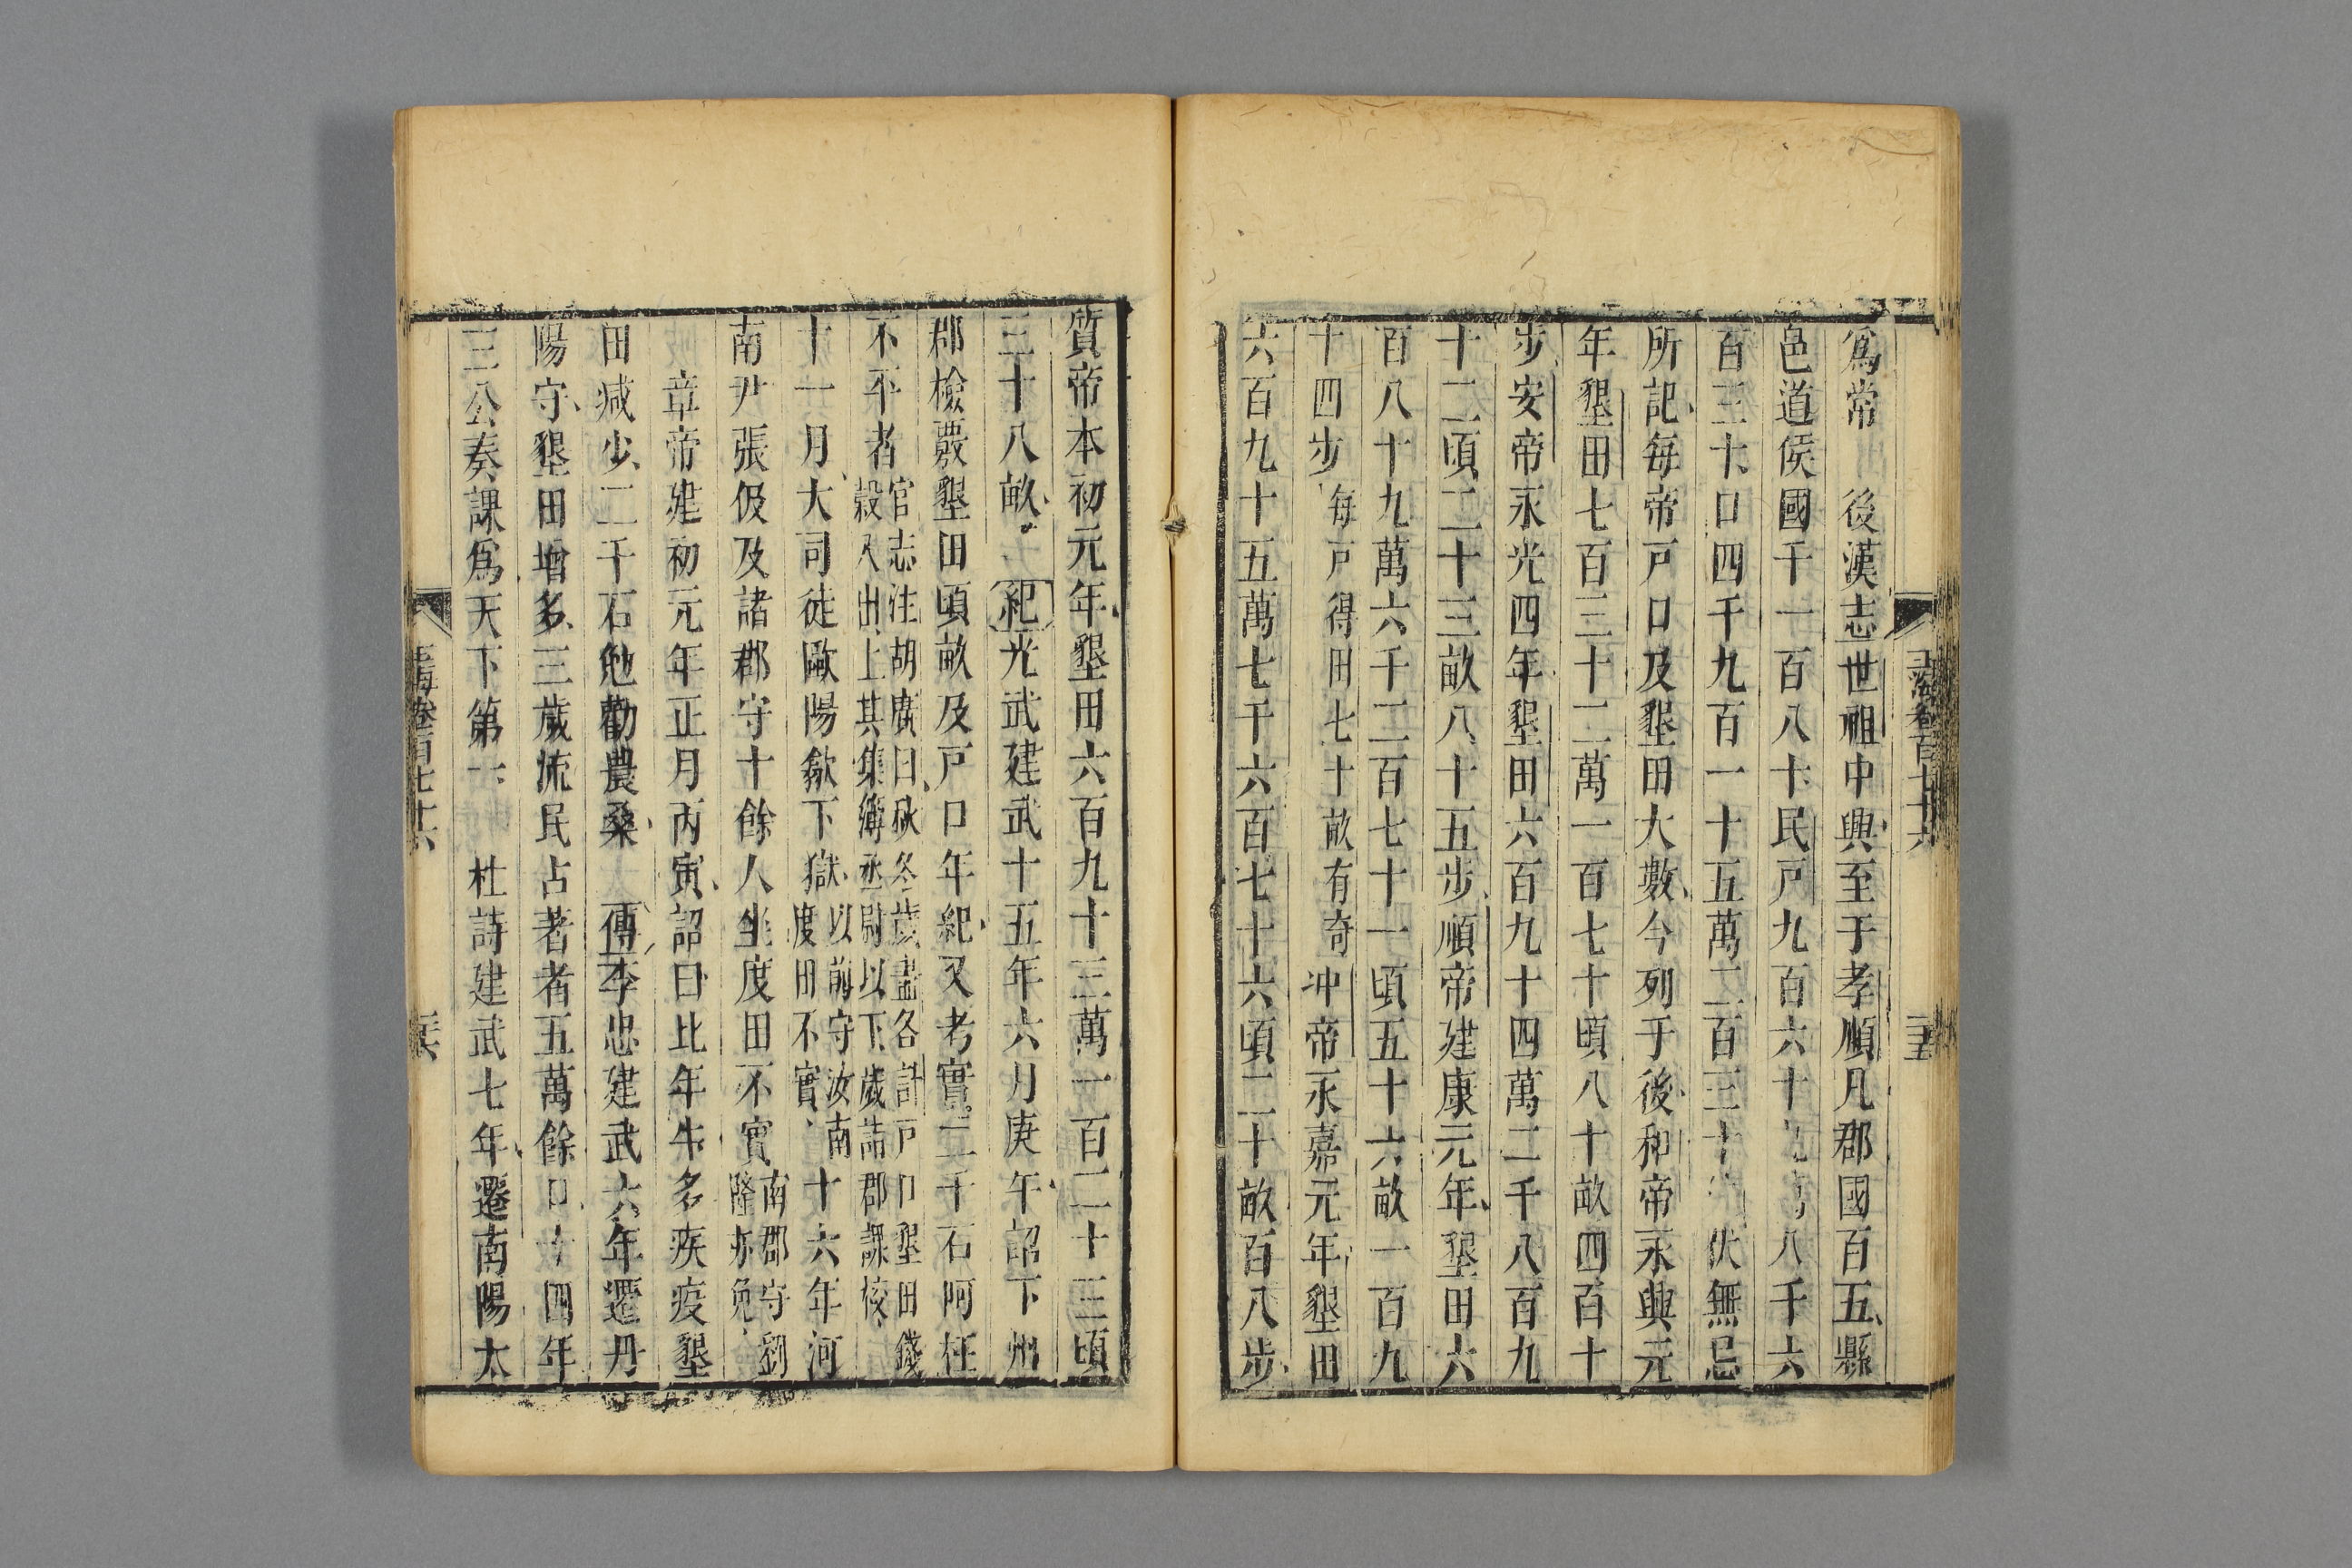 玉海卷百七十六
二十五
爲常　後漢志世祖中興至于孝順凡郡國百五縣
邑道侯國千一百八十民戸九百六十九萬八千六
百三十口四千九百一十五萬二百二十伏無忌
所記每帝戸口及墾田大數今列于後和帝永興元
年墾田七百三十二萬一百七十頃八十畝四百十
步安帝永光四年墾田六百九十四萬二千八百九
十二頃二十三畝八十五步順帝建康元年墾田六
百八十九萬六千二百七十一頃五十六畝一百九
十四步每戸得田七十畝有奇冲帝永嘉元年墾田
六百九十五萬七千六百七十六頃二十畝百八步
質帝本初元年墾田六百九十三萬一百二十三頃
三十八畝　紀光武建武十五年六月庚午詔下州
郡檢覈墾田頃畝及戸口年紀又考實二千石阿枉
不平者官志注胡廣曰秋冬歲盡各計戸口墾田錢
穀入出上其集簿丞尉以下歲詣郡課校
十一月大司徒歐陽歙下獄以前守汝南
度田不實十六年河
南尹張伋及諸郡守十餘人坐度田不實南郡守劉
隆亦免
章帝建初元年正月丙寅詔曰比年牛多疾疫墾
田減少二千石勉勸農桑　傳李忠建武六年遷丹
陽守墾田增多三歲流民占著者五萬餘口十四年
三公奏課爲天下第一　杜詩建武七年遷南陽太
玉海卷百七十六
二十六